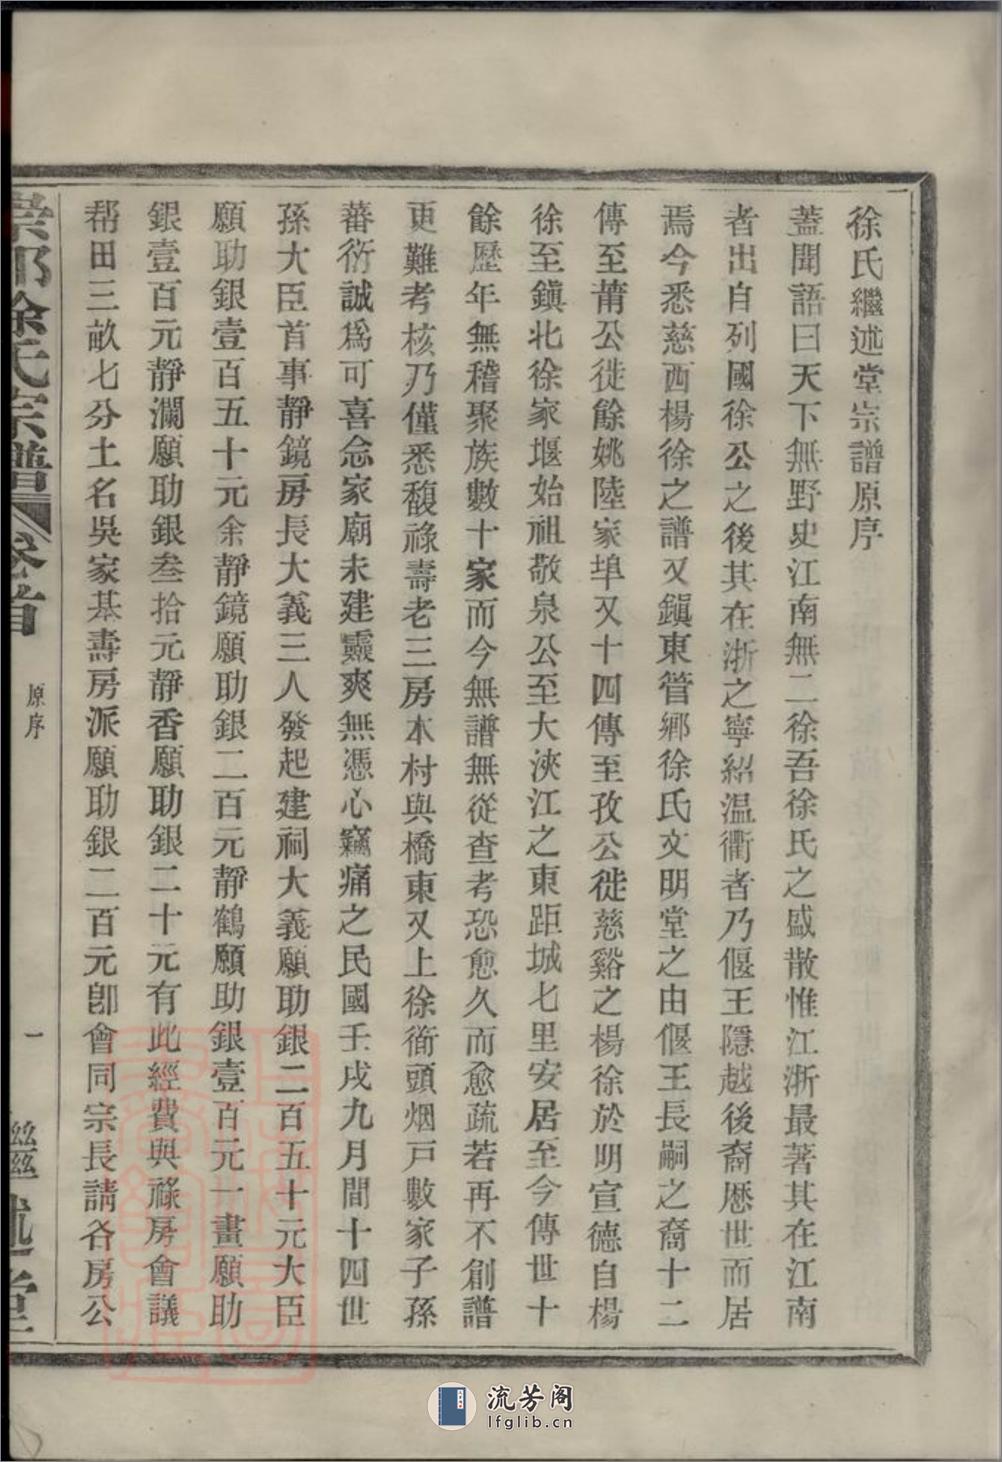 徐氏繼述堂宗譜原序
蓋聞語曰天下無野史江南無二徐吾徐氏之盛散惟江浙最著其在江南
者出自列國徐公之後其在浙之寧紹温衢者乃偃王隱越後裔歷世而居
焉今悉慈西楊徐之譜又鎭東管鄉徐氏文明堂之由偃王長嗣之裔十二
傳至莆公徙餘姚陸家埠又十四傳至孜公徙慈谿之楊徐於明宣德自楊
徐至鎭北徐家堰始祖敬泉公至大浹江之東距城七里安居至今傳世十
餘歷年無稽聚族數十家而今無譜無從查考恐愈久而愈疏若再不創譜
更難考核乃僅悉馥祿壽老三房本村與橋東又上徐衕頭烟戸數家子孫
蕃衍誠爲可喜念家廟未建靈爽無憑心竊痛之民國壬戌九月間十四世
孫大臣首事靜鏡房長大義三人發起建祠大義願助銀二百五十元大臣
願助銀壹百五十元余靜鏡願助銀二百元靜鶴願助銀壹百元一畫願助
銀壹百元靜瀾願助銀叁拾元靜香願助銀二十元有此經費與祿房會議
帮田三畝七分土名吳家基壽房派願助銀二百元卽會同宗長請各房公
崇邱徐氏宗譜
卷首
原序
一
繼述堂
流芳阁
lfglib.cn